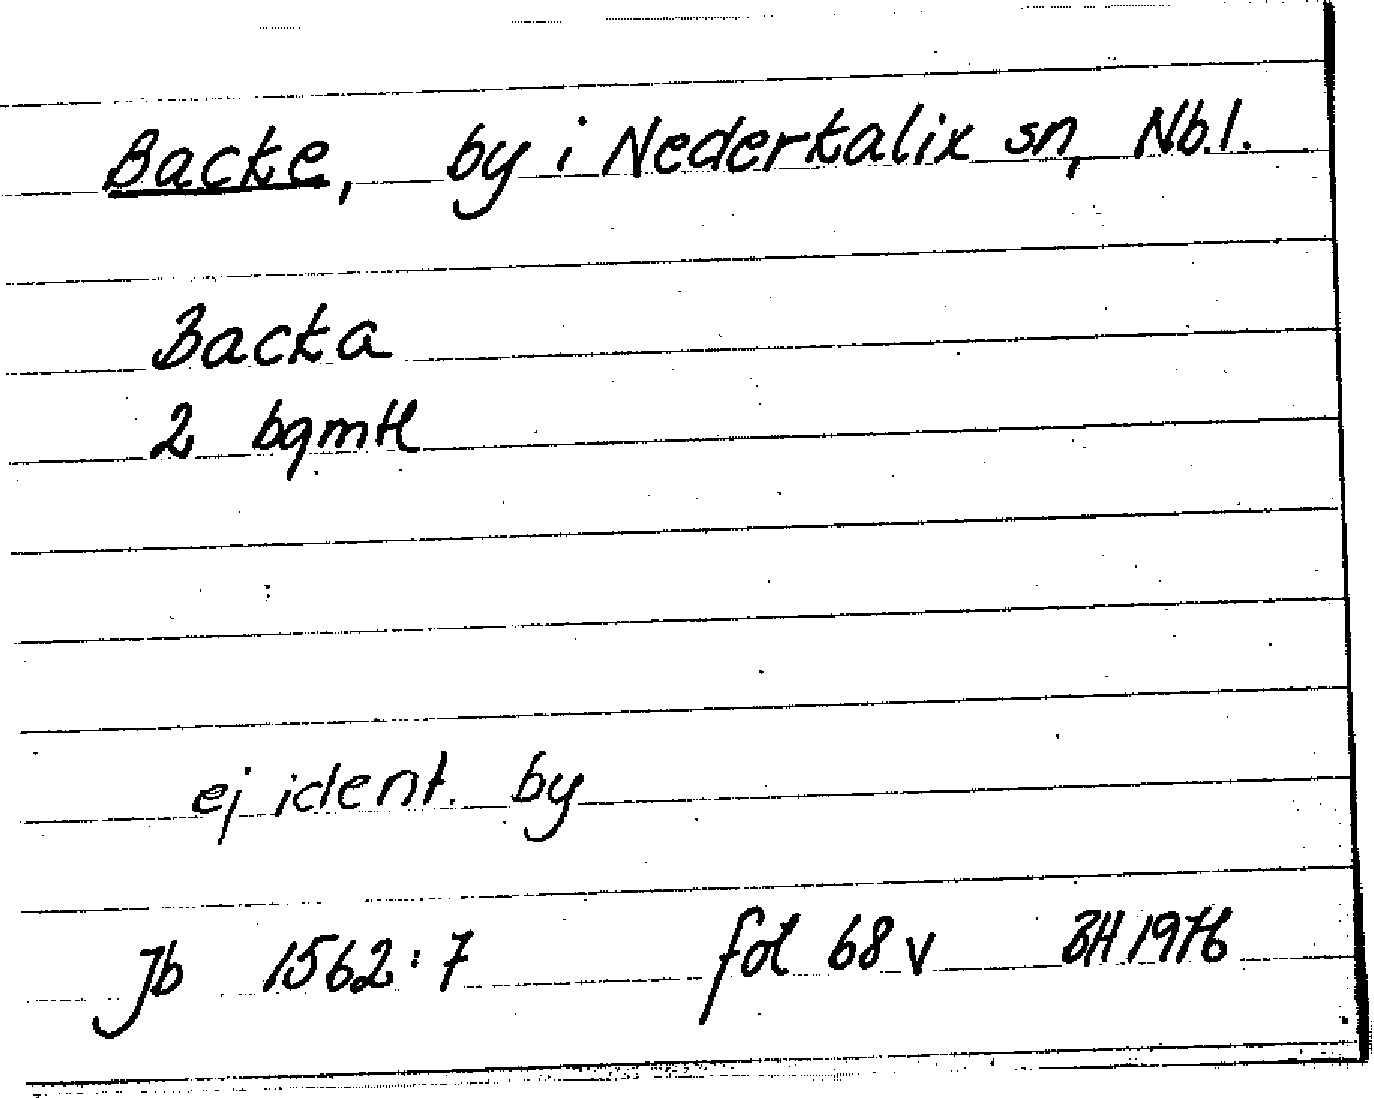 Backe, by i Nederkalix sn, Nb.l.
Backa
2 bgmtl
ej ident. by
Jb 1562:7 fol 68 v BH 1976